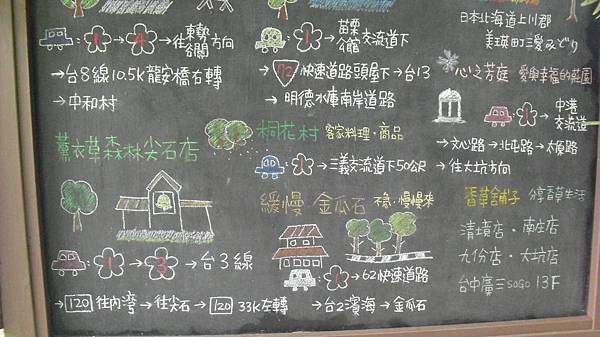 1 → 4 → 往東勢谷關方向
→台8線10.5K龍安橋右轉
→中和村
1 → 苗栗公館交流道下
→ 72 快速道路頭屋下→台13
→ 明德水庫南岸道路
日本北海道上川郡
美瑛町三愛みどり
心之芳庭 愛與幸福的莊園
: 1 → 中港交流道
→文心路→北屯路→太原路
→往大坑方向
薰衣草森林尖石店
: 1 → 3 → 台3線
→ 120 往內灣 → 往尖石 → 120 33K左轉
桐花村 客家料理・商品
: 1 → 三義交流道下50公尺
緩慢 金瓜石 不急・慢慢來
: 1 → 62快速道路
→台2濱海→金瓜石
香草舖子 分享香草生活
清境店・南庄店
九份店・大坑店
台中廣三SOGO 13F